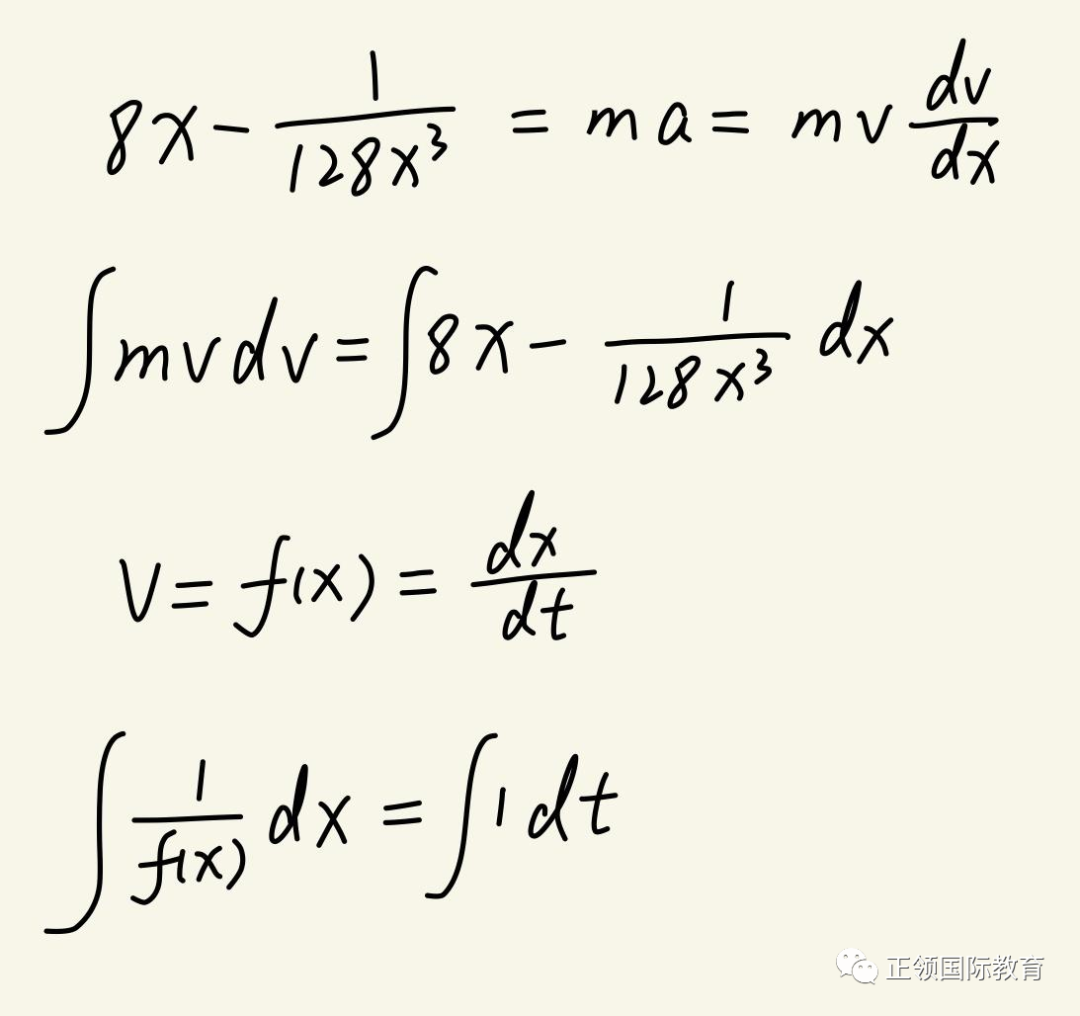 8x - \frac{1}{128x^3} = ma = mv \frac{dv}{dx}
\int mvdv = \int 8x - \frac{1}{128x^3} dx
V = f(x) = \frac{dx}{dt}
\int \frac{1}{f(x)} dx = \int 1 dt
正领国际教育